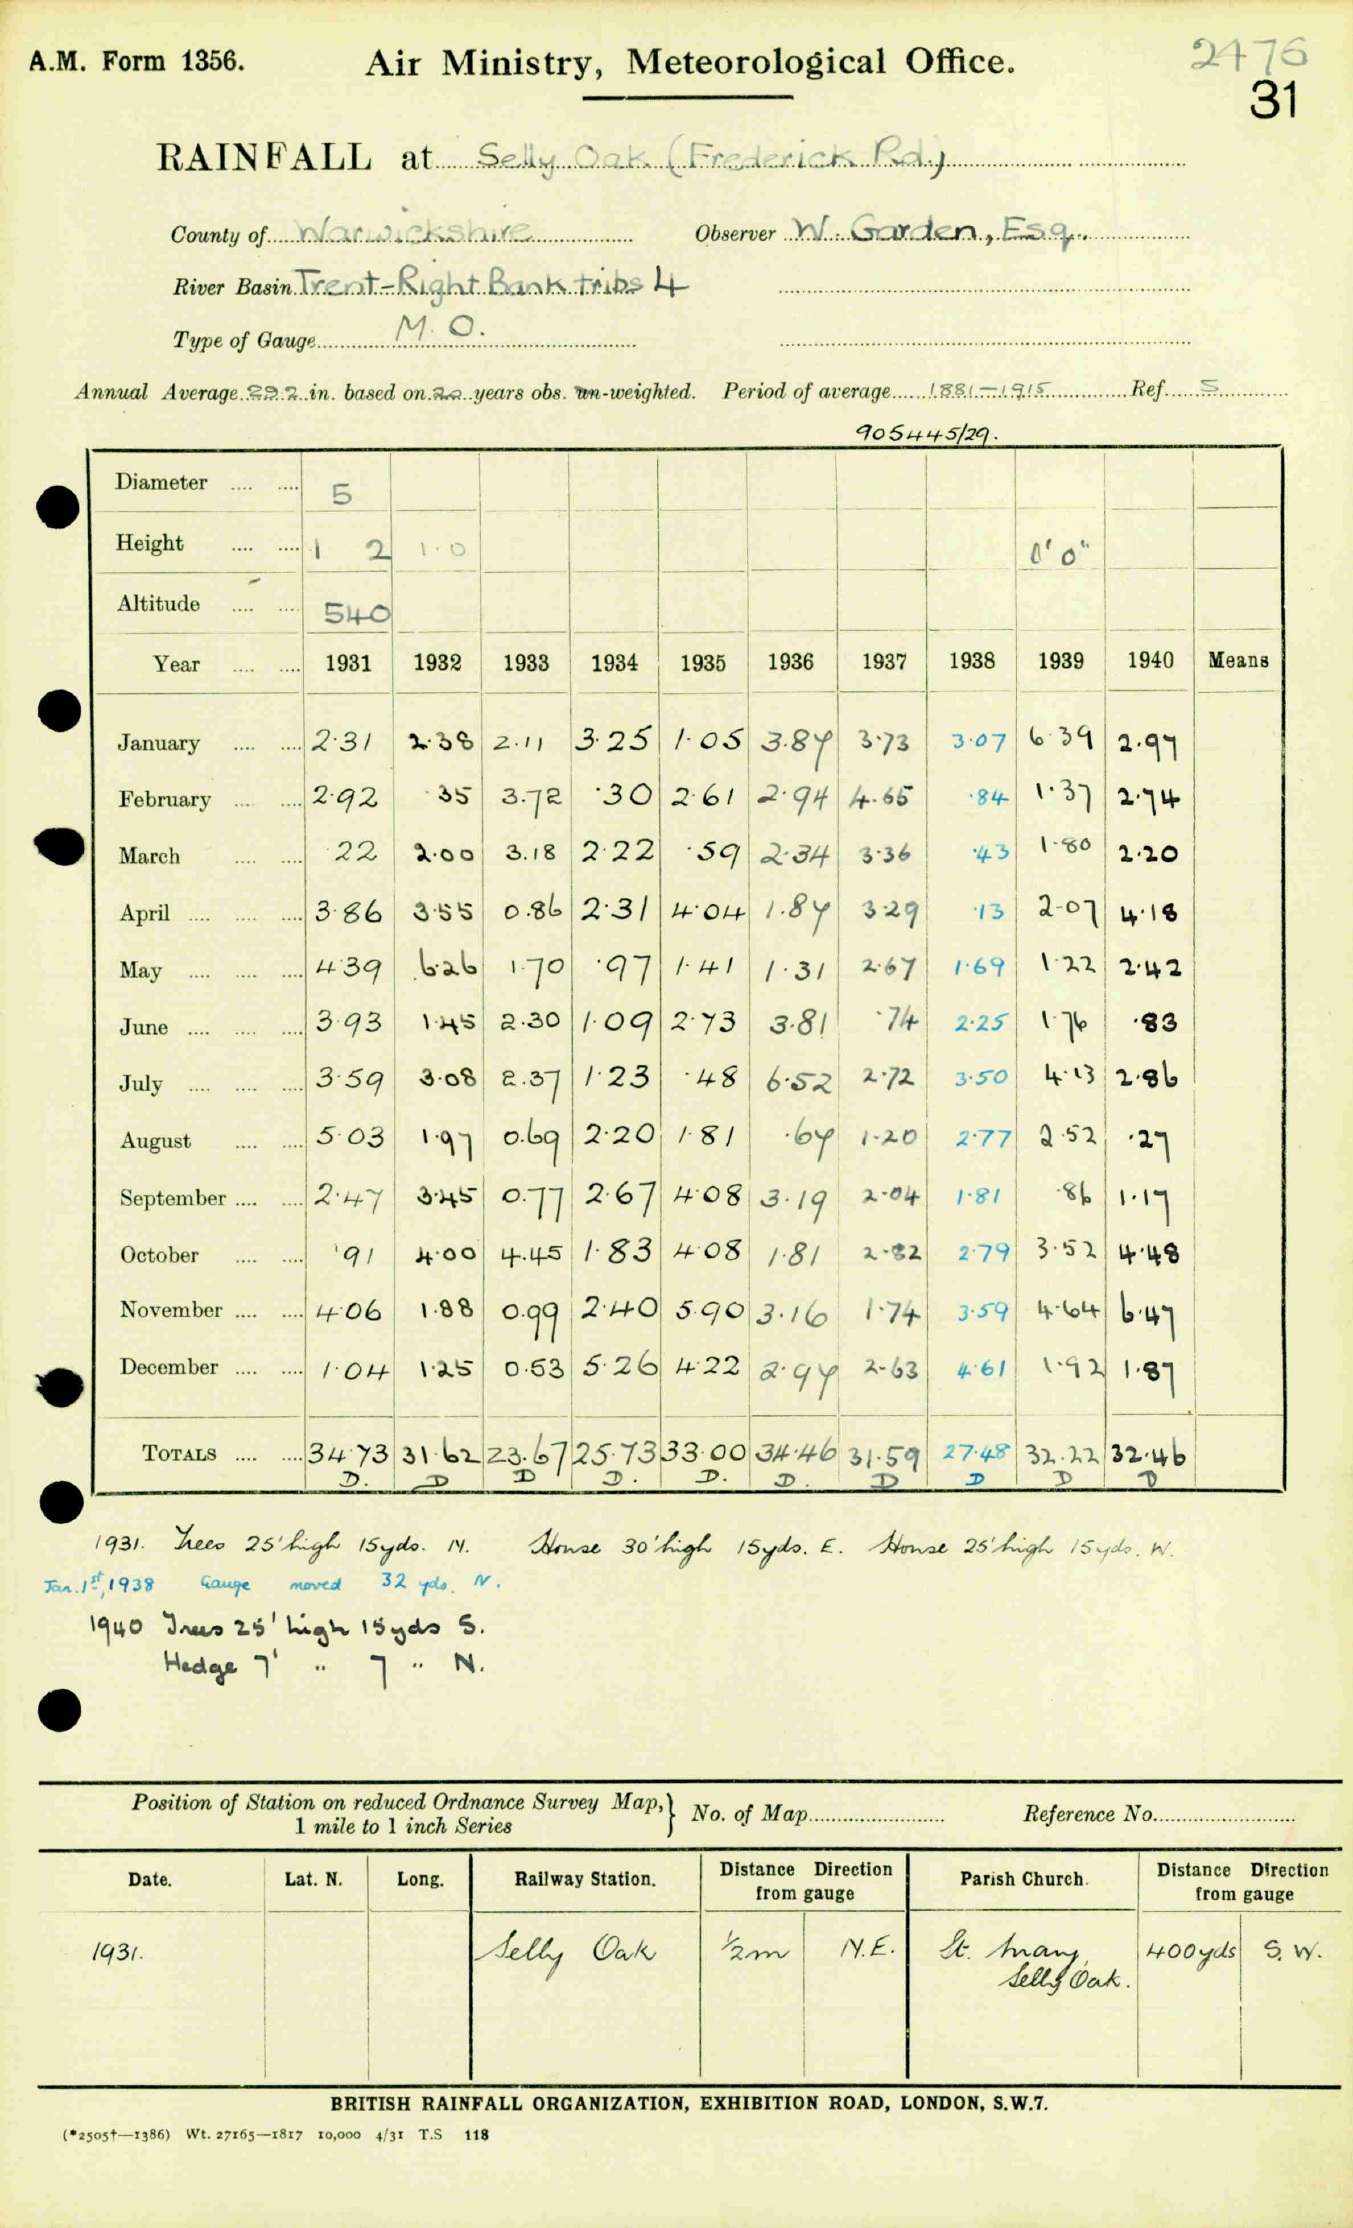 A.M. Form 1356.
Air Ministry, Meteorological Office.
2476
31
RAINFALL at Selly Oak (Frederick Rd.)
County of Warwickshire Observer W. Garden, Esq.
River Basin Trent-Right Bank tribs 4
Type of Gauge M.O.
Annual Average 29.2 in. based on 20 years obs. un-weighted. Period of average 1881-1915 Ref. S
905445/29.
Diameter .... .... 5
Height .... .... 1 2 1.0 1'0"
Altitude .... .... 540
Year .... .... 1931 1932 1933 1934 1935 1936 1937 1938 1939 1940 Means
January .... .... 2.31 2.38 2.11 3.25 1.05 3.87 3.73 3.07 6.39 2.97
February .... .... 2.92 .35 3.72 .30 2.61 2.94 4.65 .84 1.37 2.74
March .... .... 22 2.00 3.18 2.22 .59 2.34 3.36 .43 1.80 2.20
April .... .... .... 3.86 3.55 0.86 2.31 4.04 1.87 3.29 .13 2.07 4.18
May .... .... .... 4.39 6.26 1.70 .97 1.41 1.31 2.67 1.69 1.22 2.42
June .... .... .... 3.93 1.45 2.30 1.09 2.73 3.81 .74 2.25 1.76 .83
July .... .... .... 3.59 3.08 2.37 1.23 .48 6.52 2.72 3.50 4.13 2.86
August .... .... 5.03 1.97 0.69 2.20 1.81 .67 1.20 2.77 2.52 .27
September .... .... 2.47 3.45 0.77 2.67 4.08 3.19 2.04 1.81 .86 1.17
October .... .... .91 4.00 4.45 1.83 4.08 1.81 2.82 2.79 3.52 4.48
November .... .... 4.06 1.88 0.99 2.40 5.90 3.16 1.74 3.59 4.64 6.47
December .... .... 1.04 1.25 0.53 5.26 4.22 2.97 2.63 4.61 1.92 1.87
TOTALS .... .... 34.73 31.62 23.67 25.73 33.00 34.46 31.59 27.48 32.22 32.46
D. D D D. D. D. D D D D
1931. Trees 25' high 15yds. N. House 30' high 15yds. E. House 25' high 15yds. W.
Jan. 1st, 1938 Gauge moved 32 yds. N.
1940 Trees 25' high 15yds S.
Hedge 7' " 7 " N.
Position of Station on reduced Ordnance Survey Map,} No. of Map Reference No.
1 mile to 1 inch Series
Date. Lat. N. Long. Railway Station. Distance Direction from gauge Parish Church. Distance Direction from gauge
1931. Selly Oak ½m N.E. St. Mary, 400yds S.W.
Selly Oak.
BRITISH RAINFALL ORGANIZATION, EXHIBITION ROAD, LONDON, S.W.7.
(*2505†—1386) Wt. 27165—1817 10,000 4/31 T.S 118